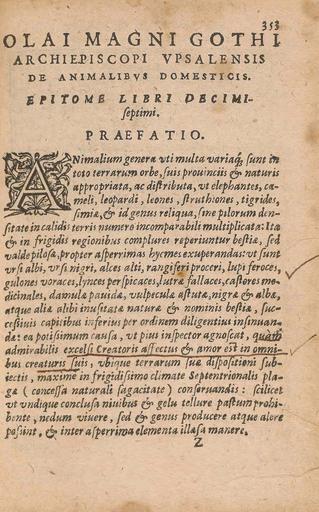 353
OLAI MAGNI GOTHI
ARCHIEPISCOPI VPSALENSIS
DE ANIMALIBVS DOMESTICIS.
EPITOME LIBRI DECIMI-
septimi.
PRAEFATIO.
ANimalium genera vti multa variaq́; sunt in
toto terrarum orbe, suis prouinciis & naturis
appropriata, ac distributa, vt elephantes, ca-
meli, leopardi, leones, struthiones, tigrides,
simiæ, & id genus reliqua, sine pilorum den-
sitate in calidis terris numero incomparabili multiplicata: Ita
& in frigidis regionibus complures reperiuntur bestiæ, sed
valde pilosæ, propter asperrimas hyemes exuperandas: vt sunt
vrsi albi, vrsi nigri, alces alti, rangiferi proceri, lupi feroces,
gulones voraces, lynces perspicaces, lutræ fallaces, castores me-
dicinales, damulæ pauidæ, vulpeculæ astutæ, nigræ & albæ,
atque aliæ alibi inusitatæ naturæ & nominis bestiæ, suc-
cessiuis capitibus inferius per ordinem diligentius insinuan-
dæ: ea potissimum causa, vt pius inspector agnoscat, quàm
admirabilis excelsi Creatoris affectus & amor est in omni-
bus creaturis suis, vbique terrarum suæ dispositioni sub-
iectis, maximè in frigidissimo climate Septentrionalis pla-
gæ ( concessa naturali sagacitate ) conseruandis : scilicet
vt vndique conclusa niuibus & gelu tellure pastum prohi-
bente, nedum viuere, sed & genus producere atque alere
possint, & inter asperrima elementa illæsa manere.
Z